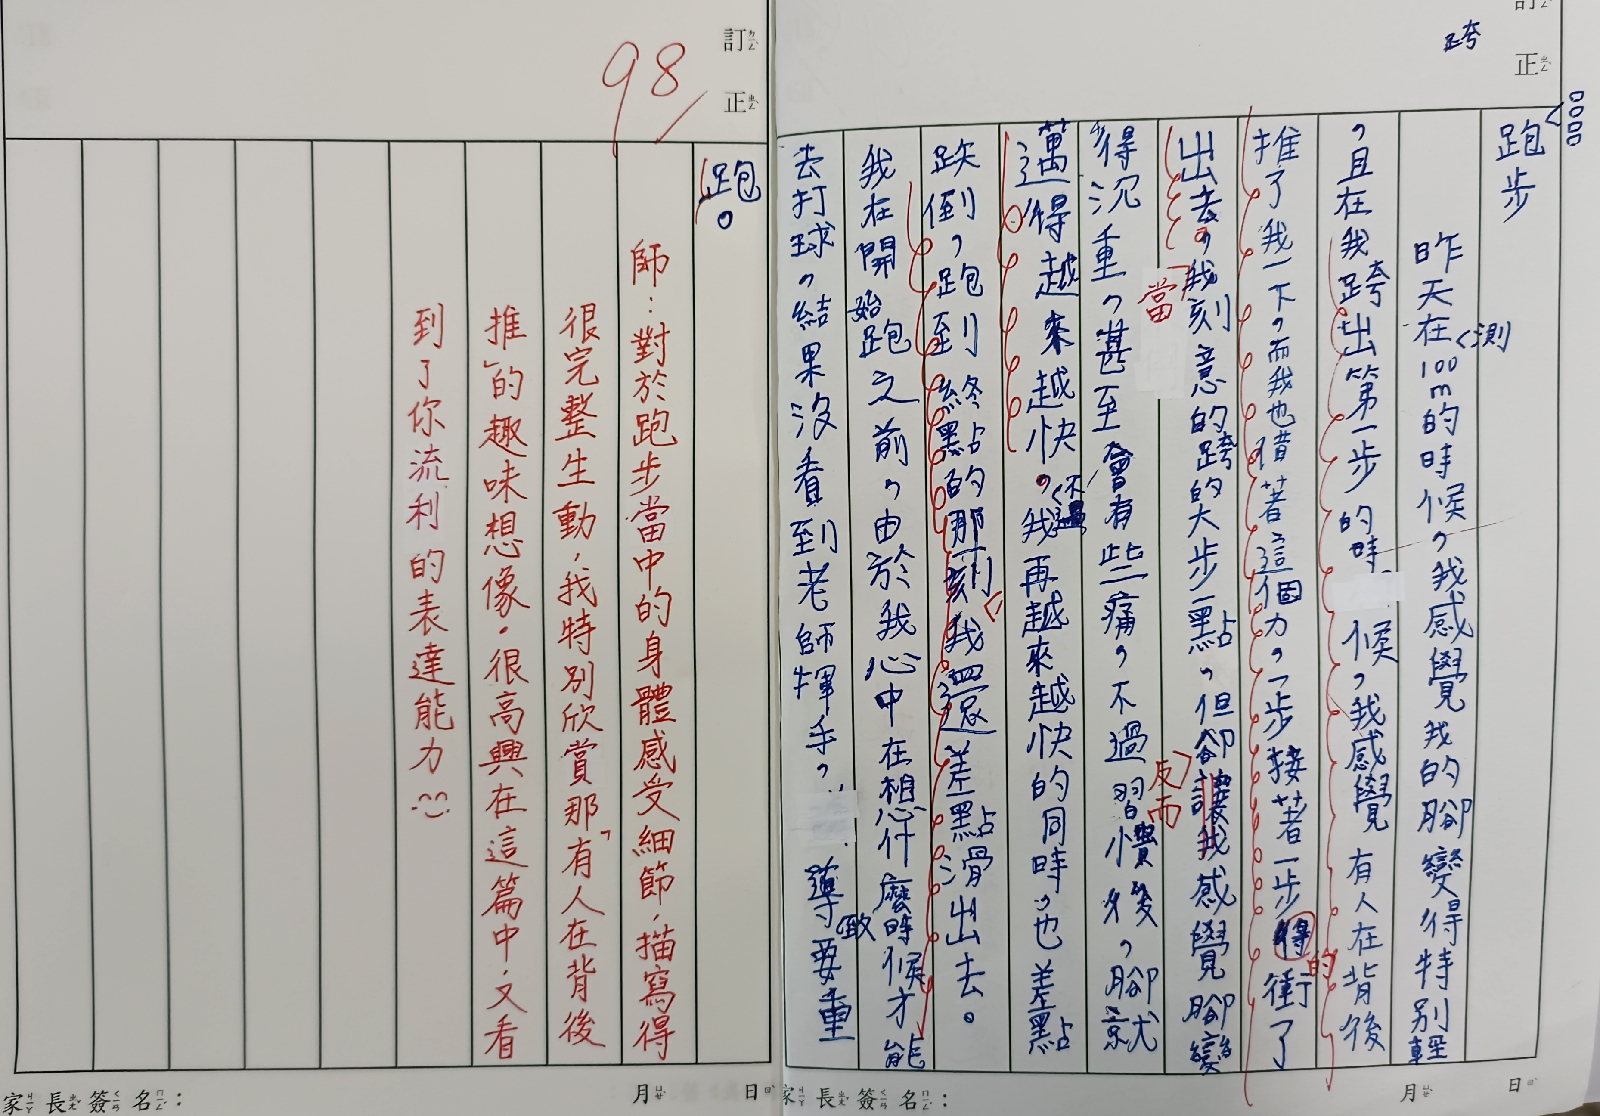 訂正
跨
跑步
昨天在測100m的時候，我感覺我的腳變得特別輕
，且在我跨出第一步的時候，我感覺有人在背後
推了我一下，而我也借著這個力，一步接著一步得衝了
的
出去，我刻意的跨的大步一點，但卻讓我感覺腳變
當
反而
得沉重，甚至會有些痛，不過習慣後，腳就
邁得越來越快。不過我再越來越快的同時，也差點
跌倒，跑到終點的那刻我還差點滑出去。
我在開始跑之前，由於我心中在想什麼時候才能
去打球，結果沒看到老師揮手，導致要重
跑。
訂正
98
師：對於跑步當中的身體感受細節，描寫得
很完整生動，我特別欣賞那「有人在背後
推」的趣味想像。很高興在這篇中，又看
到了你流利的表達能力
家長簽名：
月 日
家長簽名：
月 日